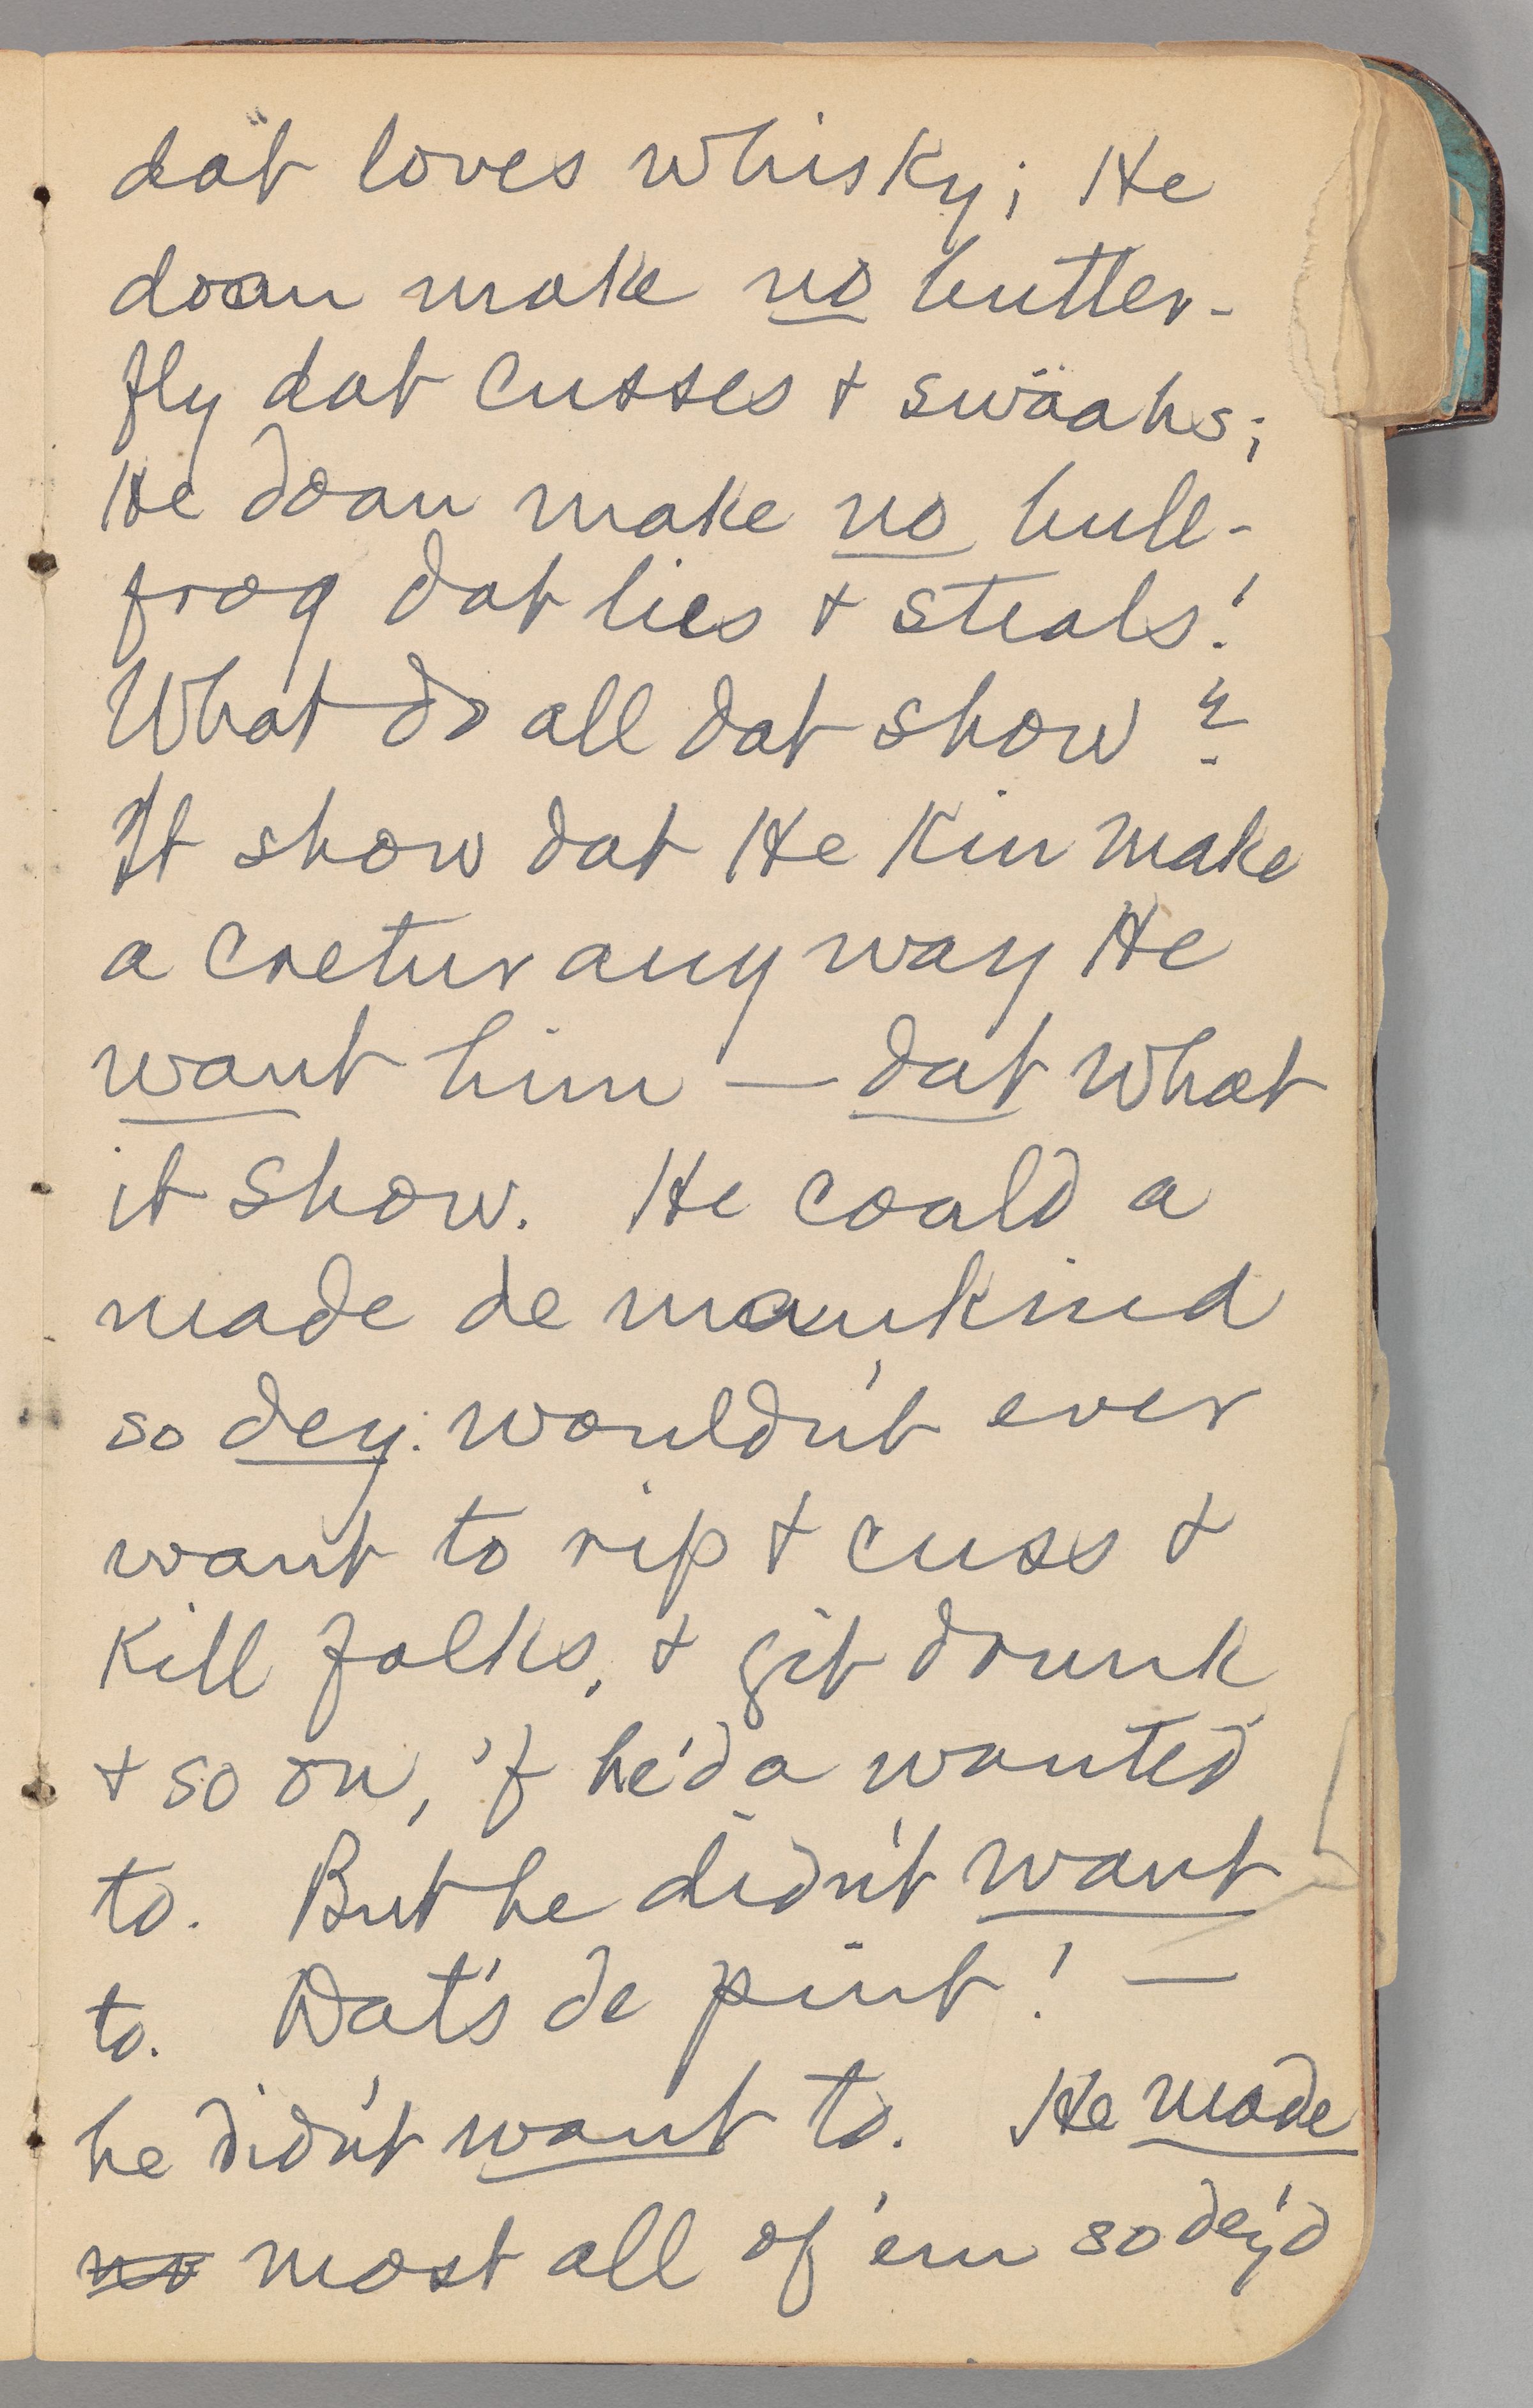 dat loves whisky; He
doan make no butter-
fly dat cusses & swäahs;
He doan make no bull-
frog dat lies & steals!
What do all dat show?
It show dat He kin make
a cretur any way He
want him — dat what
it show. He could a
made de mankind
so dey wouldn't ever
want to rip & cuss &
kill folks, & git drunk
& so on, 'f he'd a wanted
to. But he didn't want
to. Dat's de pint! —
he didn't want to. He made
no most all of 'em so dey'd